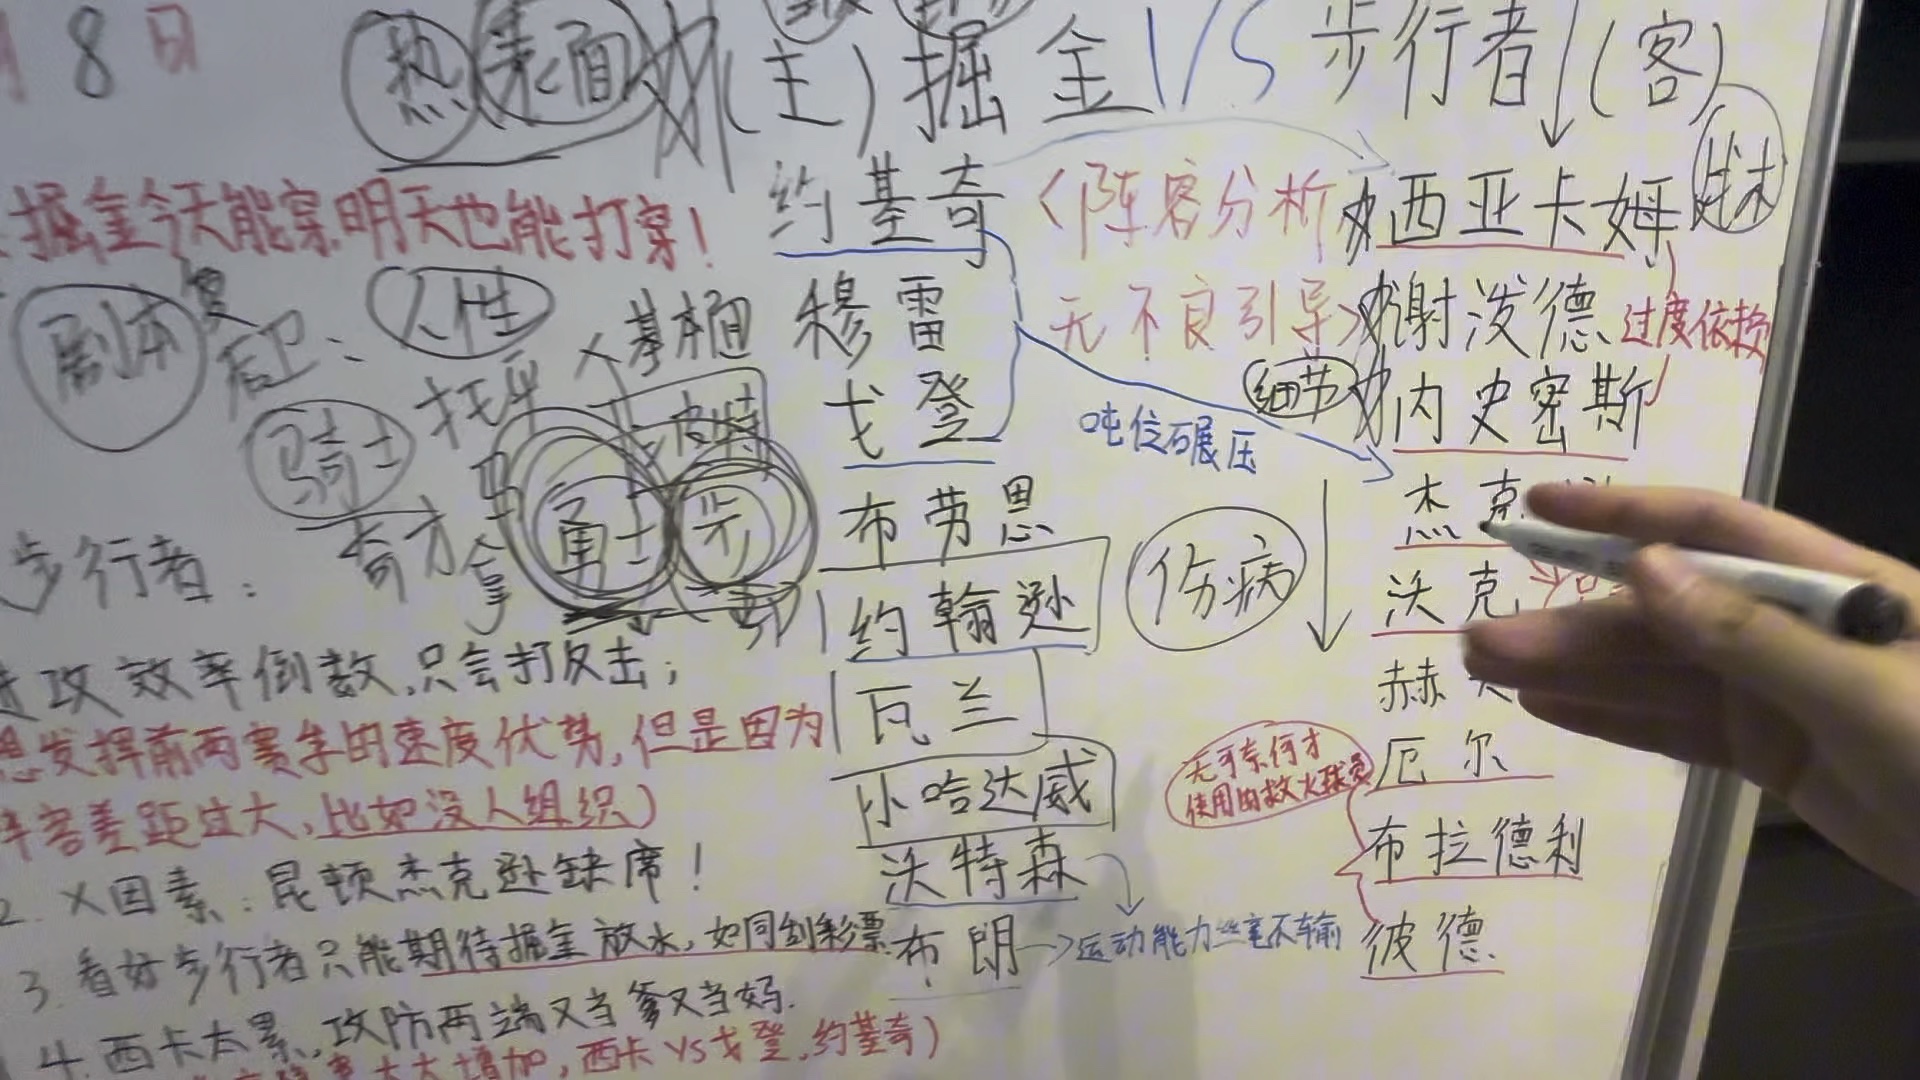 月8日
热 表面 (主)掘金 VS 步行者(客)
掘金今天能穿明天也能打穿！
约基奇
<阵容分析
西亚卡姆
战术
剧本
后卫：
人性
基本面
穆雷
无不良引导>
谢泼德
过度依赖
骑士
皮特
戈登
吨位碾压
细节
内史密斯
勇士
步行者：
布劳恩
伤病
杰克
约翰逊
沃克
进攻效率倒数,只会打反击；
瓦兰
赫
想发挥前两赛季的速度优势,但是因为
无可奈何才
使用的救火球员
厄尔
阵容差距过大,比如没人组织)
小哈达威
布拉德利
2. X因素：昆顿杰克逊缺席！
沃特森
3. 看好步行者只能期待掘金放水,如同刮彩票
布朗
→运动能力丝毫不输
彼德
4. 西卡太累,攻防两端又当爹又当妈.
大大增加,西卡VS戈登,约基奇)